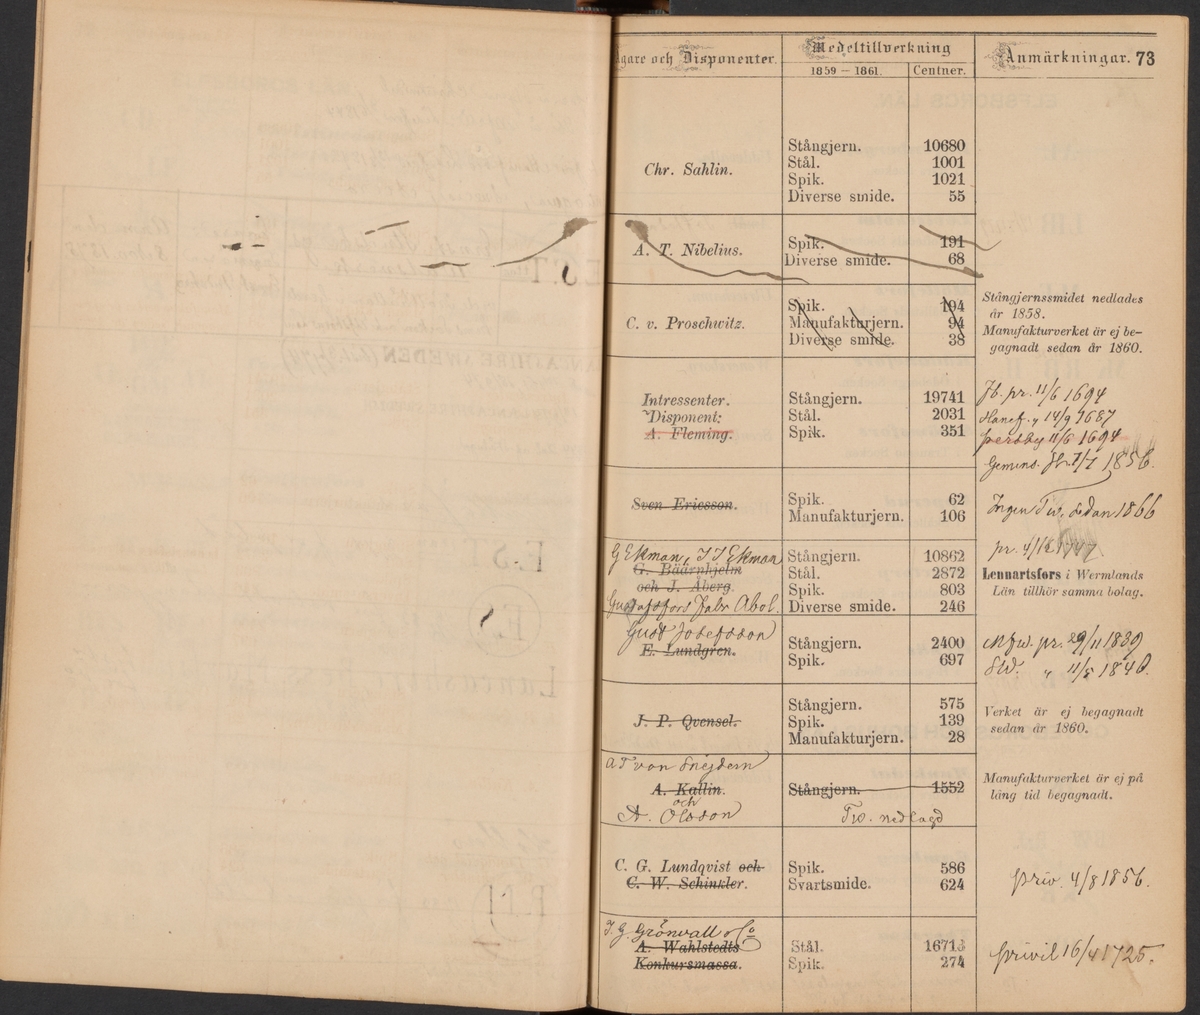 Ägare och Disponenter. Medeltillverkning Anmärkningar. 73
1859 – 1861. Centner.
Chr. Sahlin.
Stångjern. 10680
Stål. 1001
Spik. 1021
Diverse smide. 55
A. T. Nibelius.
Spik. 191
Diverse smide. 68
C. v. Proschwitz.
Spik. 194
Manufakturjern. 94
Diverse smide. 38
Stångjernssmidet nedlades
år 1858.
Manufakturverket är ej be-
gagnadt sedan år 1860.
Intressenter.
Disponent:
A. Fleming.
Stångjern. 19741
Stål. 2031
Spik. 351
Jb. pr. 11/6 1694
14/9 1687
11/6 1694
Gemens. 7/7 1856.
Sven Ericsson.
Spik. 62
Manufakturjern. 106
Ingen Tw. sedan 1866
G Ekman, J J Ekman
G. Bäärnhjelm
och J. Åberg.
Gustafsfors Fabr Abol.
Stångjern. 10862
Stål. 2872
Spik. 803
Diverse smide. 246
pr. 4/12 1747
Lennartsfors i Wermlands
Län tillhör samma bolag.
Gust Josefsson
E. Lundgren.
Stångjern. 2400
Spik. 697
Mfw. pr. 29/11 1839
" 11/5 1846.
J. P. Qvensel.
Stångjern. 575
Spik. 139
Manufakturjern. 28
Verket är ej begagnadt
sedan år 1860.
A F von Sneidern
A. Kallin.
och
A. Olsson
Stångjern. 1552
Tw. nedlagd
Manufakturverket är ej på
lång tid begagnadt.
C. G. Lundqvist och
C. W. Schinkler.
Spik. 586
Svartsmide. 624
priv. 4/8 1856.
J. G. Grönvall & Co
A. Wahlstedts
Konkursmassa.
Stål. 16713
Spik. 274
privil 16/4 1725.